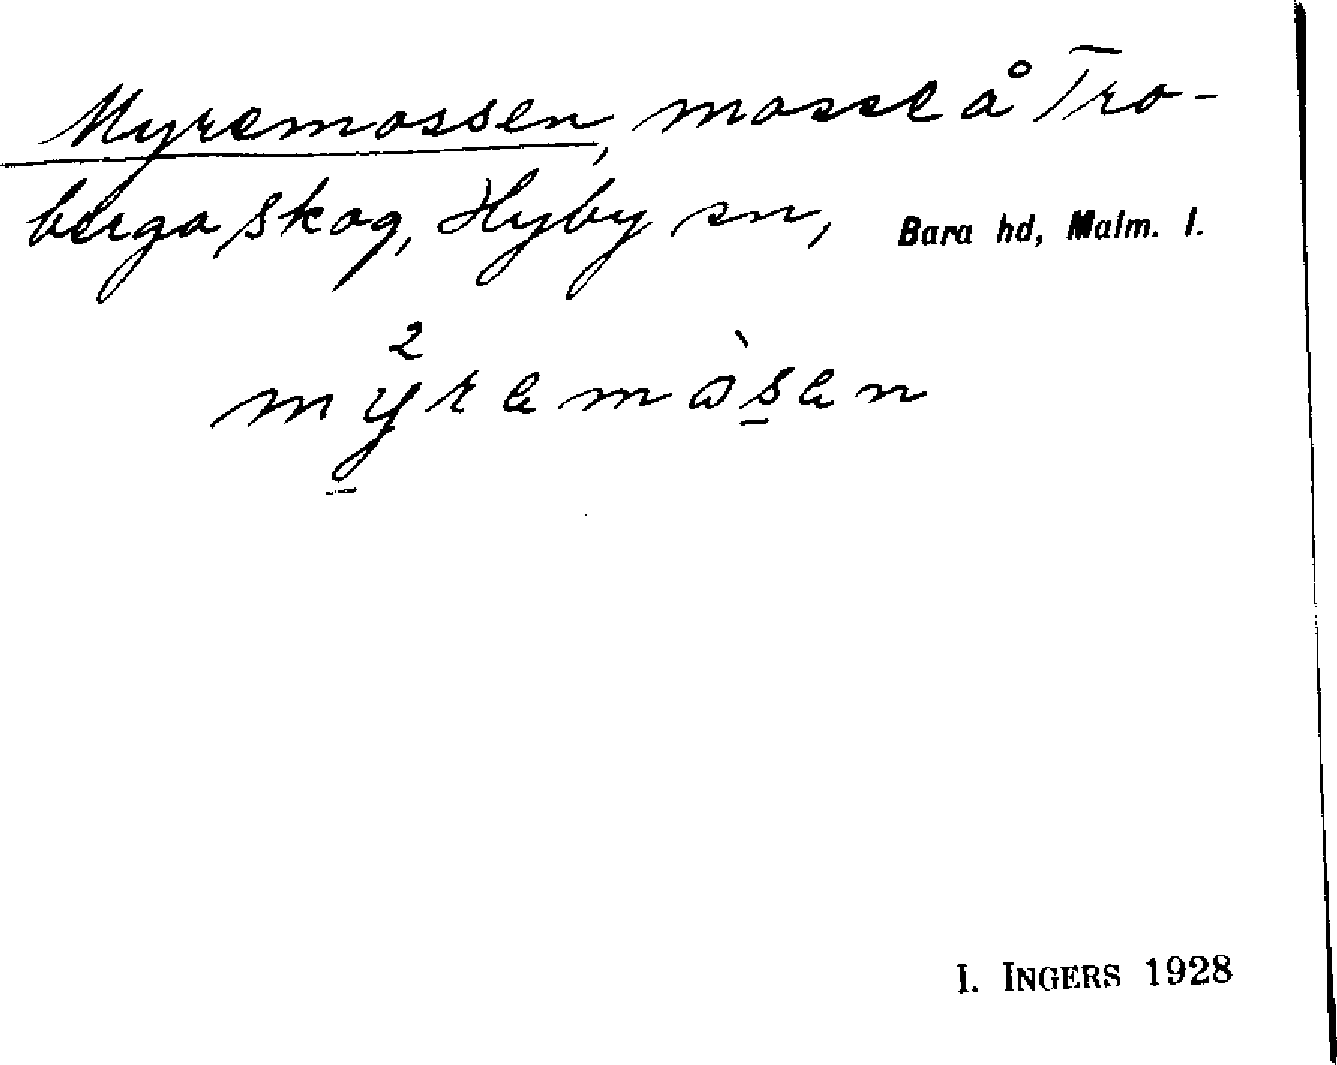 Myremossen, mosse å Tro-
berga skog, Hyby sn, Bara hd, Malm. l.
my̱²remòs̱en
I. INGERS 1928